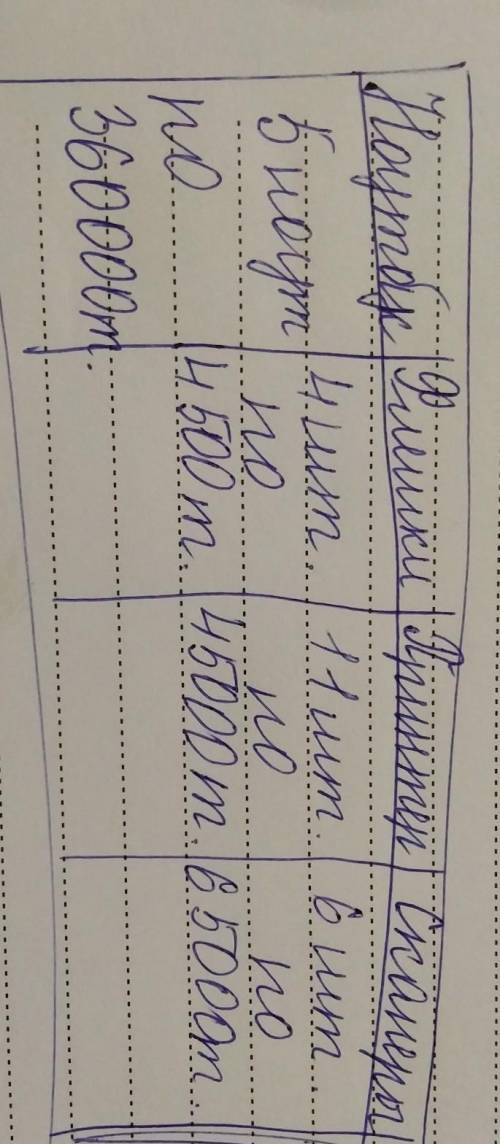 Ноутбук Флешки Принтер Сканеры
5 ноут
по
360000т.
4 шт.
по
4500т.
11 шт.
по
45000т.
6 шт
по
65000т.